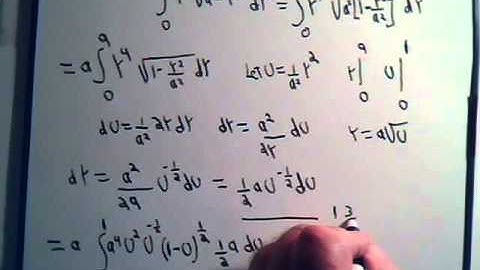 ∫₀ r⁴ √(a² - r²) dr = ∫₀ r⁴ √(a²[1 - r²/a²]) dr
= a ∫₀^a r⁴ √(1 - r²/a²) dr   Let U = 1/a² r²   r |₀^a   U |₀^1
dU = 1/a² 2r dr   dr = a²/2r dU   r = a√U
dr = a²/2a U^(-1/2) dU = 1/2 a U^(-1/2) dU
= a ∫₀^1 a⁴ U² U^(-1/2) (1-U)^(1/2) 1/2 a dU   1 3